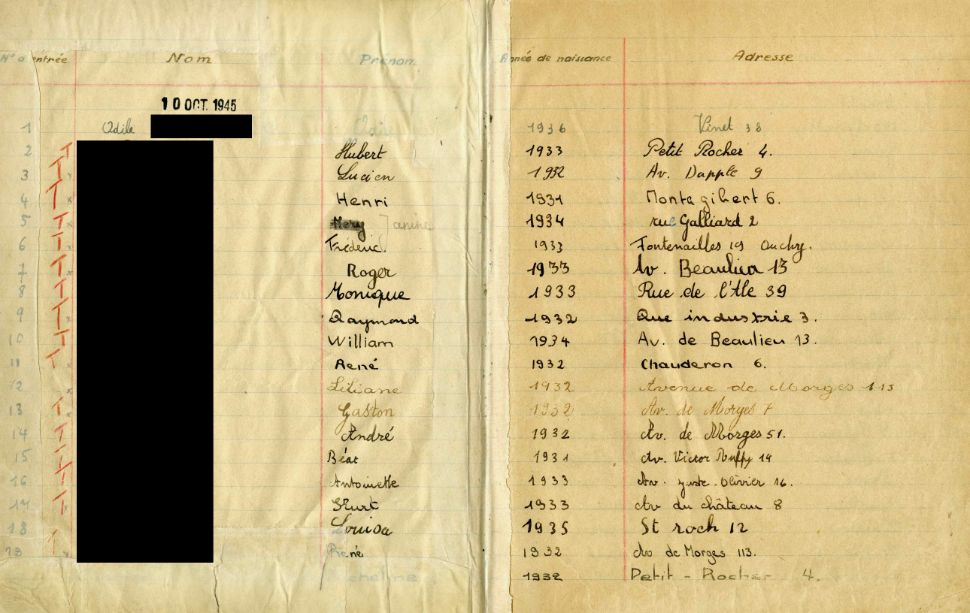 N° d'entrée Nom Prénom Année de naissance Adresse
10 OCT. 1945
1 Odile 1936 Vinet 38
2 Hubert 1933 Petit Rocher 4.
3 Lucien 1932 Av. Dapple 9
4 Henri 1931 Montagibert 6.
5 Janine 1934 rue Galliard 2
6 Fréderic 1933 Fontenailles 19 Ouchy.
7 Roger 1933 Av. Beaulieu 13
8 Monique 1933 Rue de l'Ale 39
9 Raymond 1932 industrie 3.
10 William 1934 Av. de Beaulieu 13.
11 René 1932 Chauderon 6.
12 Liliane 1932 Avenue de Morges 113
13 Gaston 1932 Av. de Morges 7
14 André 1932 Av. de Morges 51.
15 Béat 1931 Av. Victor Ruffy 14
16 Antoinette 1933 Av. Juste Olivier 16.
17 Kurt 1933 Av du château 8
18 Louisa 1935 St roch 12
19 René 1932 Av de Morges 113.
Micheline 1932 Petit-Rocher 4.